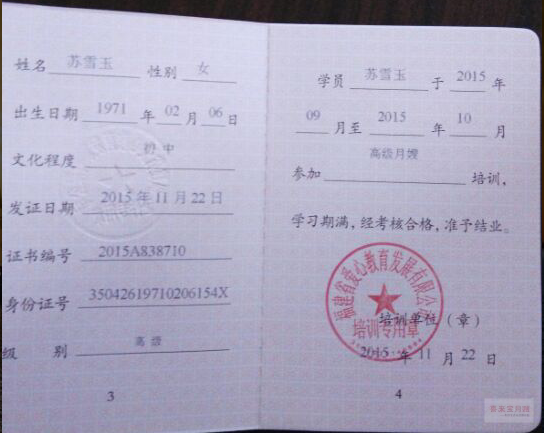 姓名 苏雪玉 性别 女
出生日期 1971 年 02 月 06 日
文化程度 初中
发证日期 2015年11月22日
证书编号 2015A838710
身份证号 35042619710206154X
级 别 高级
3
学员 苏雪玉 于 2015 年
09 月至 2015 年 10 月
高级月嫂
参加 培训,
学习期满,经考核合格,准予结业。
福建省爱心教育发展有限公司
培训专用章
培训单位(章)
2015 年 11 月 22 日
4